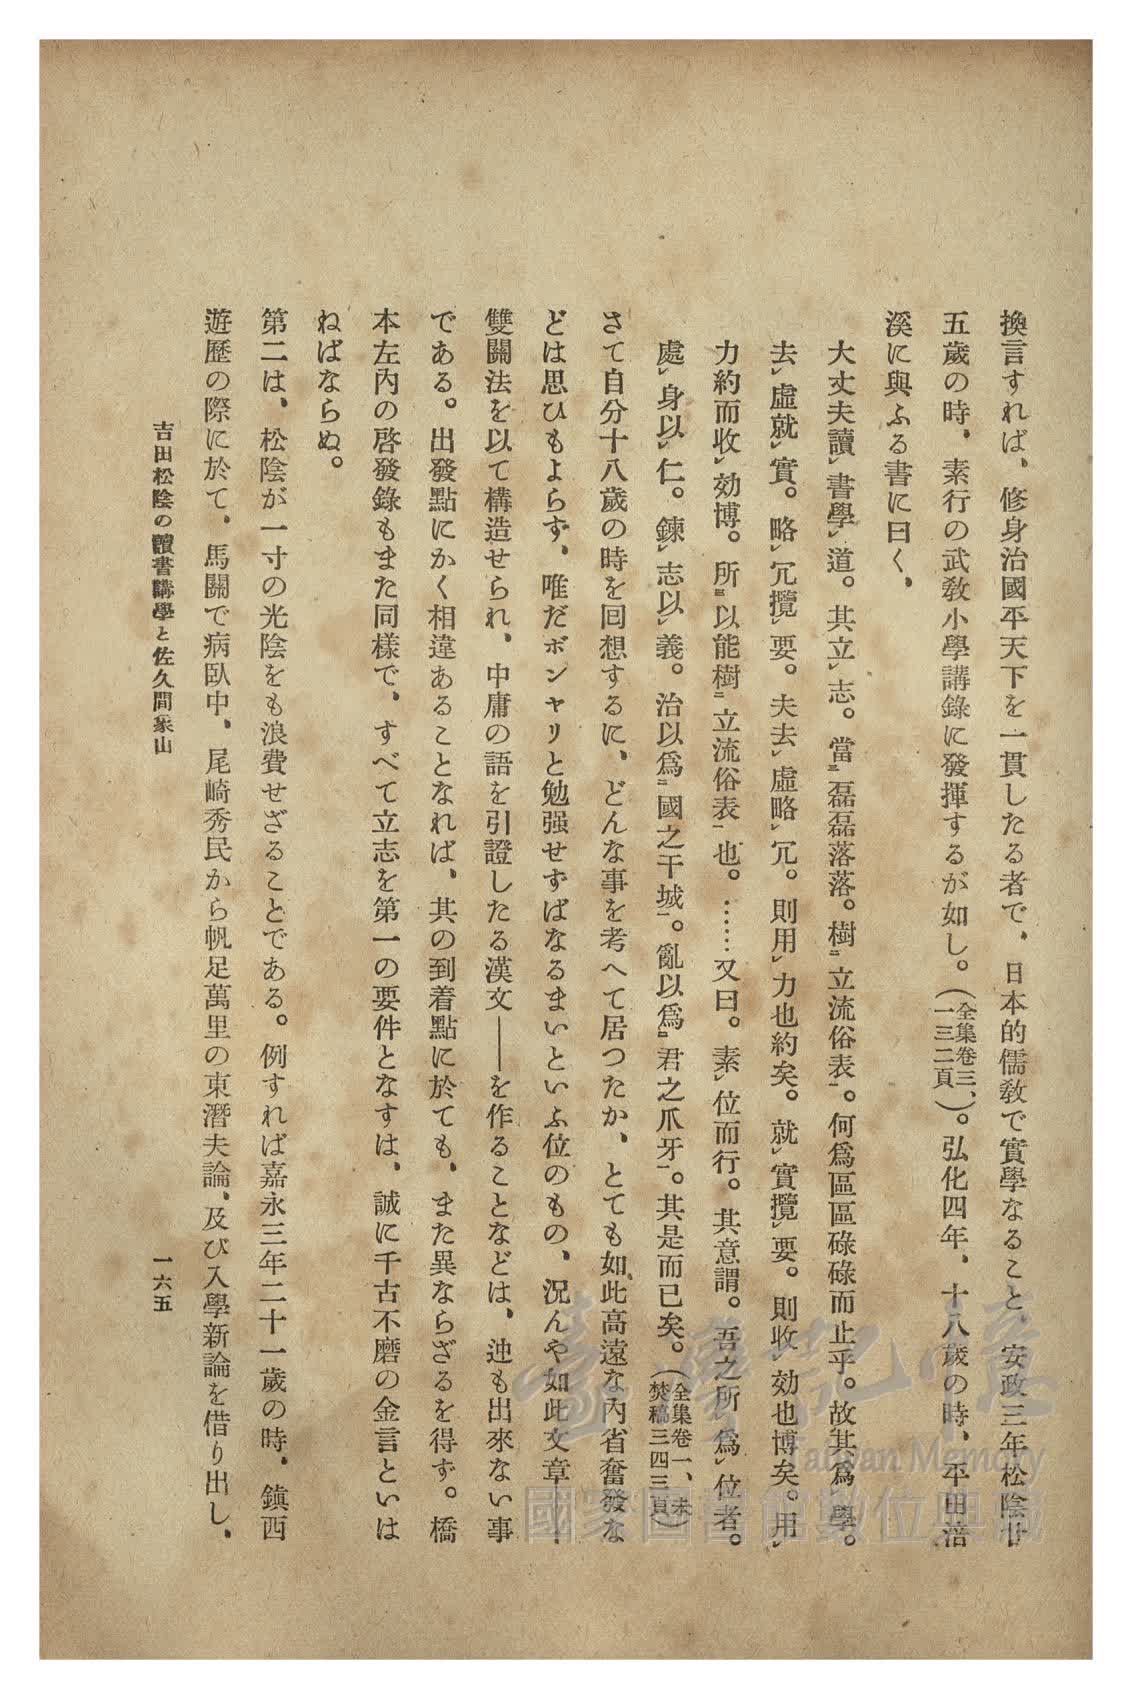 換言すれば、修身治國平天下を一貫したる者で、日本的儒敎で實學なること、安政三年松陰廿
五歲の時、素行の武敎小學講錄に發揮するが如し。（全集卷三、一三二頁）。弘化四年、十八歲の時、平田涪
溪に與ふる書に曰く、
大丈夫讀レ書學レ道。其立レ志。當三磊磊落落。樹二立流俗表一。何爲區區碌碌而止乎。故其爲レ學。
去レ虛就レ實。略レ冗攬レ要。夫去レ虛略レ冗。則用レ力也約矣。就レ實攬レ要。則收レ効也博矣。用レ
力約而收レ効博。所三以能樹二立流俗表一也。……又曰。素レ位而行。其意謂。吾之所レ爲レ位者。
處レ身以レ仁。鍊レ志以レ義。治以爲二國之干城一。亂以爲二君之爪牙一。其是而已矣。（全集卷一、未焚稿三四三頁）
さて自分十八歲の時を回想するに、どんな事を考へて居つたか、とても如此高遠な內省奮發な
どは思ひもよらず、唯だボンヤリと勉强せずばなるまいといふ位のもの、況んや如此文章――
雙關法を以て構造せられ、中庸の語を引證したる漢文――を作ることなどは、迚も出來ない事
である。出發點にかく相違あることなれば、其の到着點に於ても、また異ならざるを得ず。橋
本左內の啓發錄もまた同樣で、すべて立志を第一の要件となすは、誠に千古不磨の金言といは
ねばならぬ。
第二は、松陰が一寸の光陰をも浪費せざることである。例すれば嘉永三年二十一歲の時、鎭西
遊歷の際に於て、馬關で病臥中、尾崎秀民から帆足萬里の東潛夫論、及び入學新論を借り出し、
吉田松陰の讀書講學と佐久間象山
一六五
臺灣記憶
Taiwan Memory
國家圖書館數位典藏